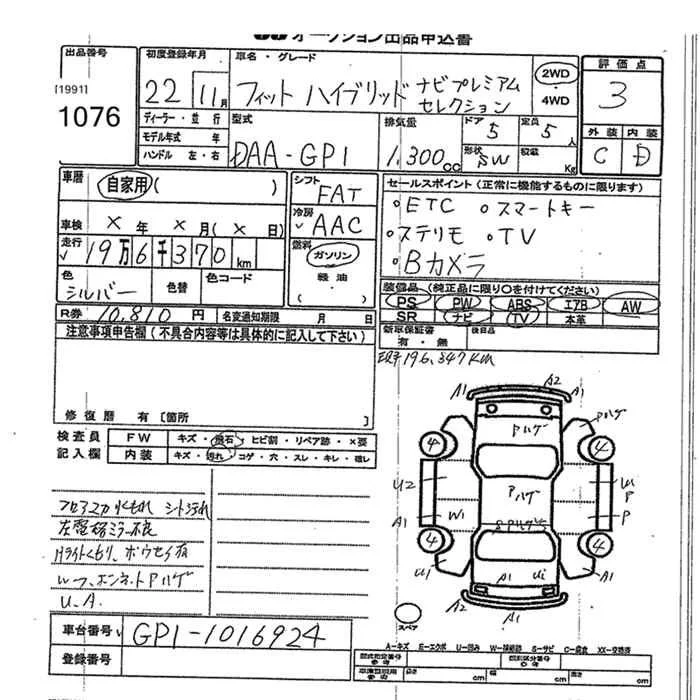 オークション出品申込書
出品番号
[1991]
1076
初度登録年月
22 11月
車名・グレード
フィット ハイブリッド ナビプレミアム
セレクション
2WD
・4WD
評価点
3
外装 内装
C D
ディーラー・並行
モデル年式 年
ハンドル 左・右
型式
DAA-GP1
排気量
1,300cc
ドア 5
定員 5人
形状 SW
積載 Kg
車歴
自家用( )
車検 × 年 × 月( × 日)
走行 √ 19万6千370km
色 シルバー
色替
色コード
シフト
FAT
冷房
√ AAC
燃料
ガソリン
軽油
セールスポイント(正常に機能するものに限ります)
・ETC ・スマートキー
・ステリモ ・TV
・Bカメラ
装備品(純正品に限り〇を付けてください)
PS PW ABS エアB AW
SR ナビ TV 本革
新車保証書
有・無
後日品
R券 10,810円 名変通知期限 月 日
注意事項申告欄(不具合内容等は具体的に記入して下さい)
現車196,347km
修復歴 有[箇所 ]
検査員
記入欄
FW キズ・飛石・ヒビ割・リペア跡・×要
内装 キズ・汚れ・コゲ・穴・スレ・キレ・破レ
シート汚れ
左電格ミラー不良
Hライトくもり、
ルーフ、ボンネットPハゲ
U.A.
A1 A2 A1
Pハゲ Pハゲ
4 4
U2 Pハゲ U
P
A1 W1 P
4 4
U1 A1 U1 A1
A2 A1
スペア
A-キズ E-エクボ U-凹み W-補修跡 S-サビ C-腐食 XX-交換済
車台番号 √ GP1-1016924
登録番号
型式指定番号
類別区分番号
長さ cm 幅 cm 高さ cm